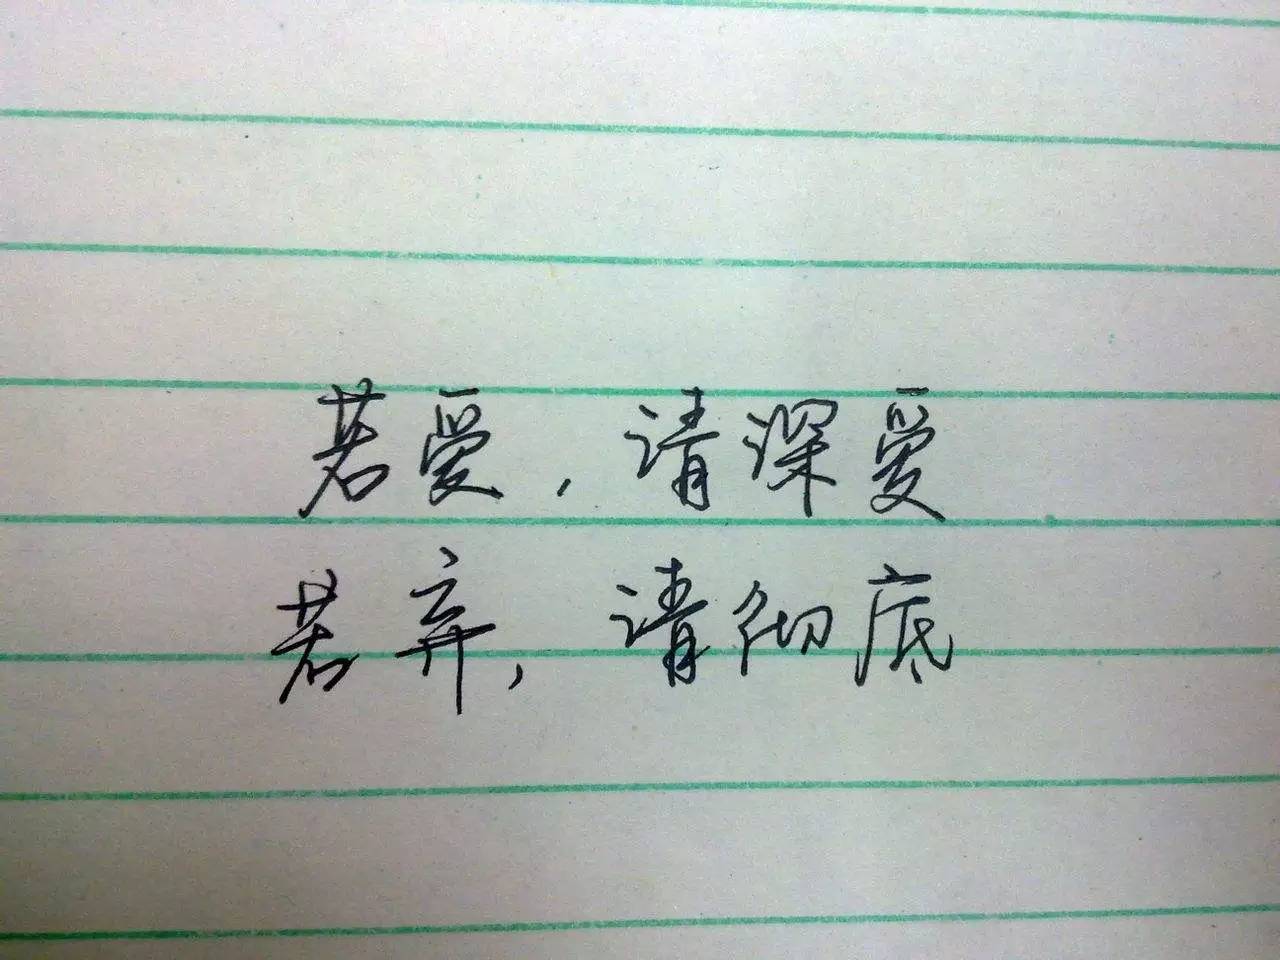 若爱，请深爱
若弃，请彻底